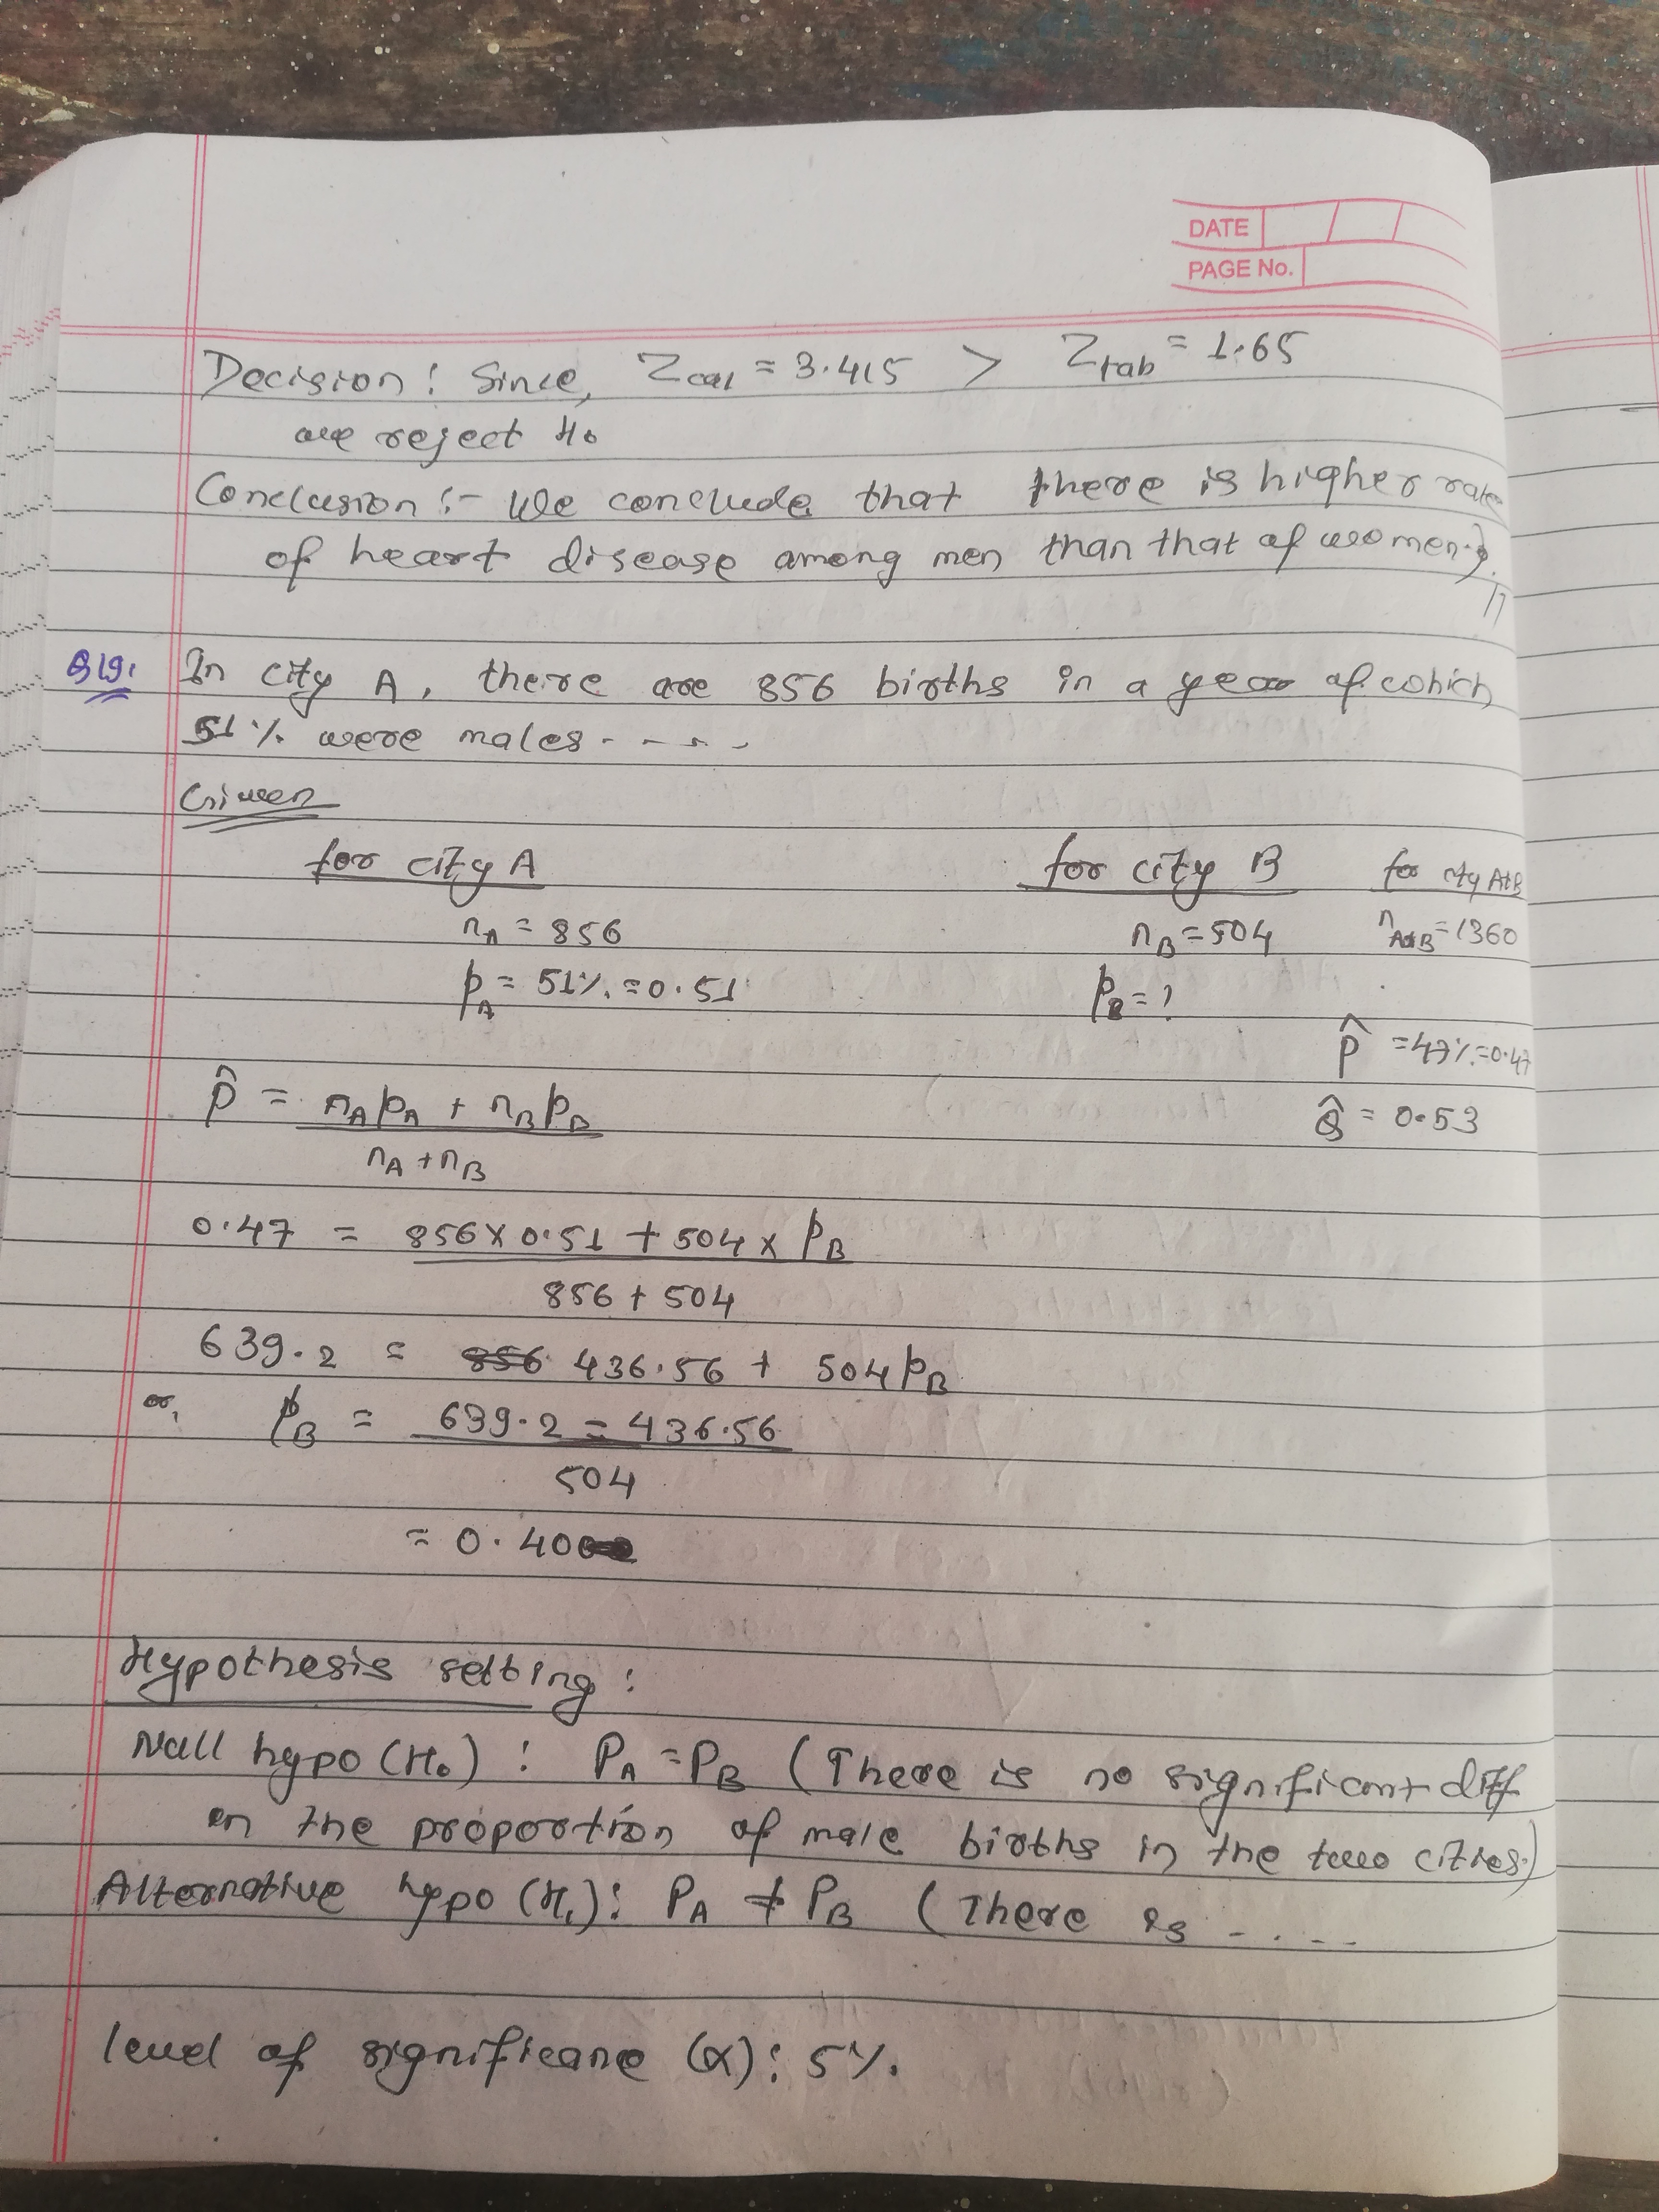 DATE
PAGE No.
Decision : Since, Zcal = 3.415 > Ztab = 1.65
we reject H₀
Conclusion :- We conclude that there is higher rate
of heart disease among men than that of women.
Q19. In city A, there are 856 births in a year of which
51% were males - - - - -
Given
for city A for city B for city A&B
nA = 856 nB = 504 nA&B = 1360
pA = 51% = 0.51 pB = ?
P̂ = 47% = 0.47
P̂ = nA pA + nB pB
nA + nB
Q̂ = 0.53
0.47 = 856 x 0.51 + 504 x pB
856 + 504
639.2 = 856 436.56 + 504 pB
or, pB = 639.2 = 436.56
504
= 0.40
Hypothesis setting :
Null hypo (H₀) : PA = PB (There is no significant diff
in the proportion of male births in the two cities.)
Alternative hypo (H₁) : PA ≠ PB (There is - . . - -
level of significane (α) : 5%.